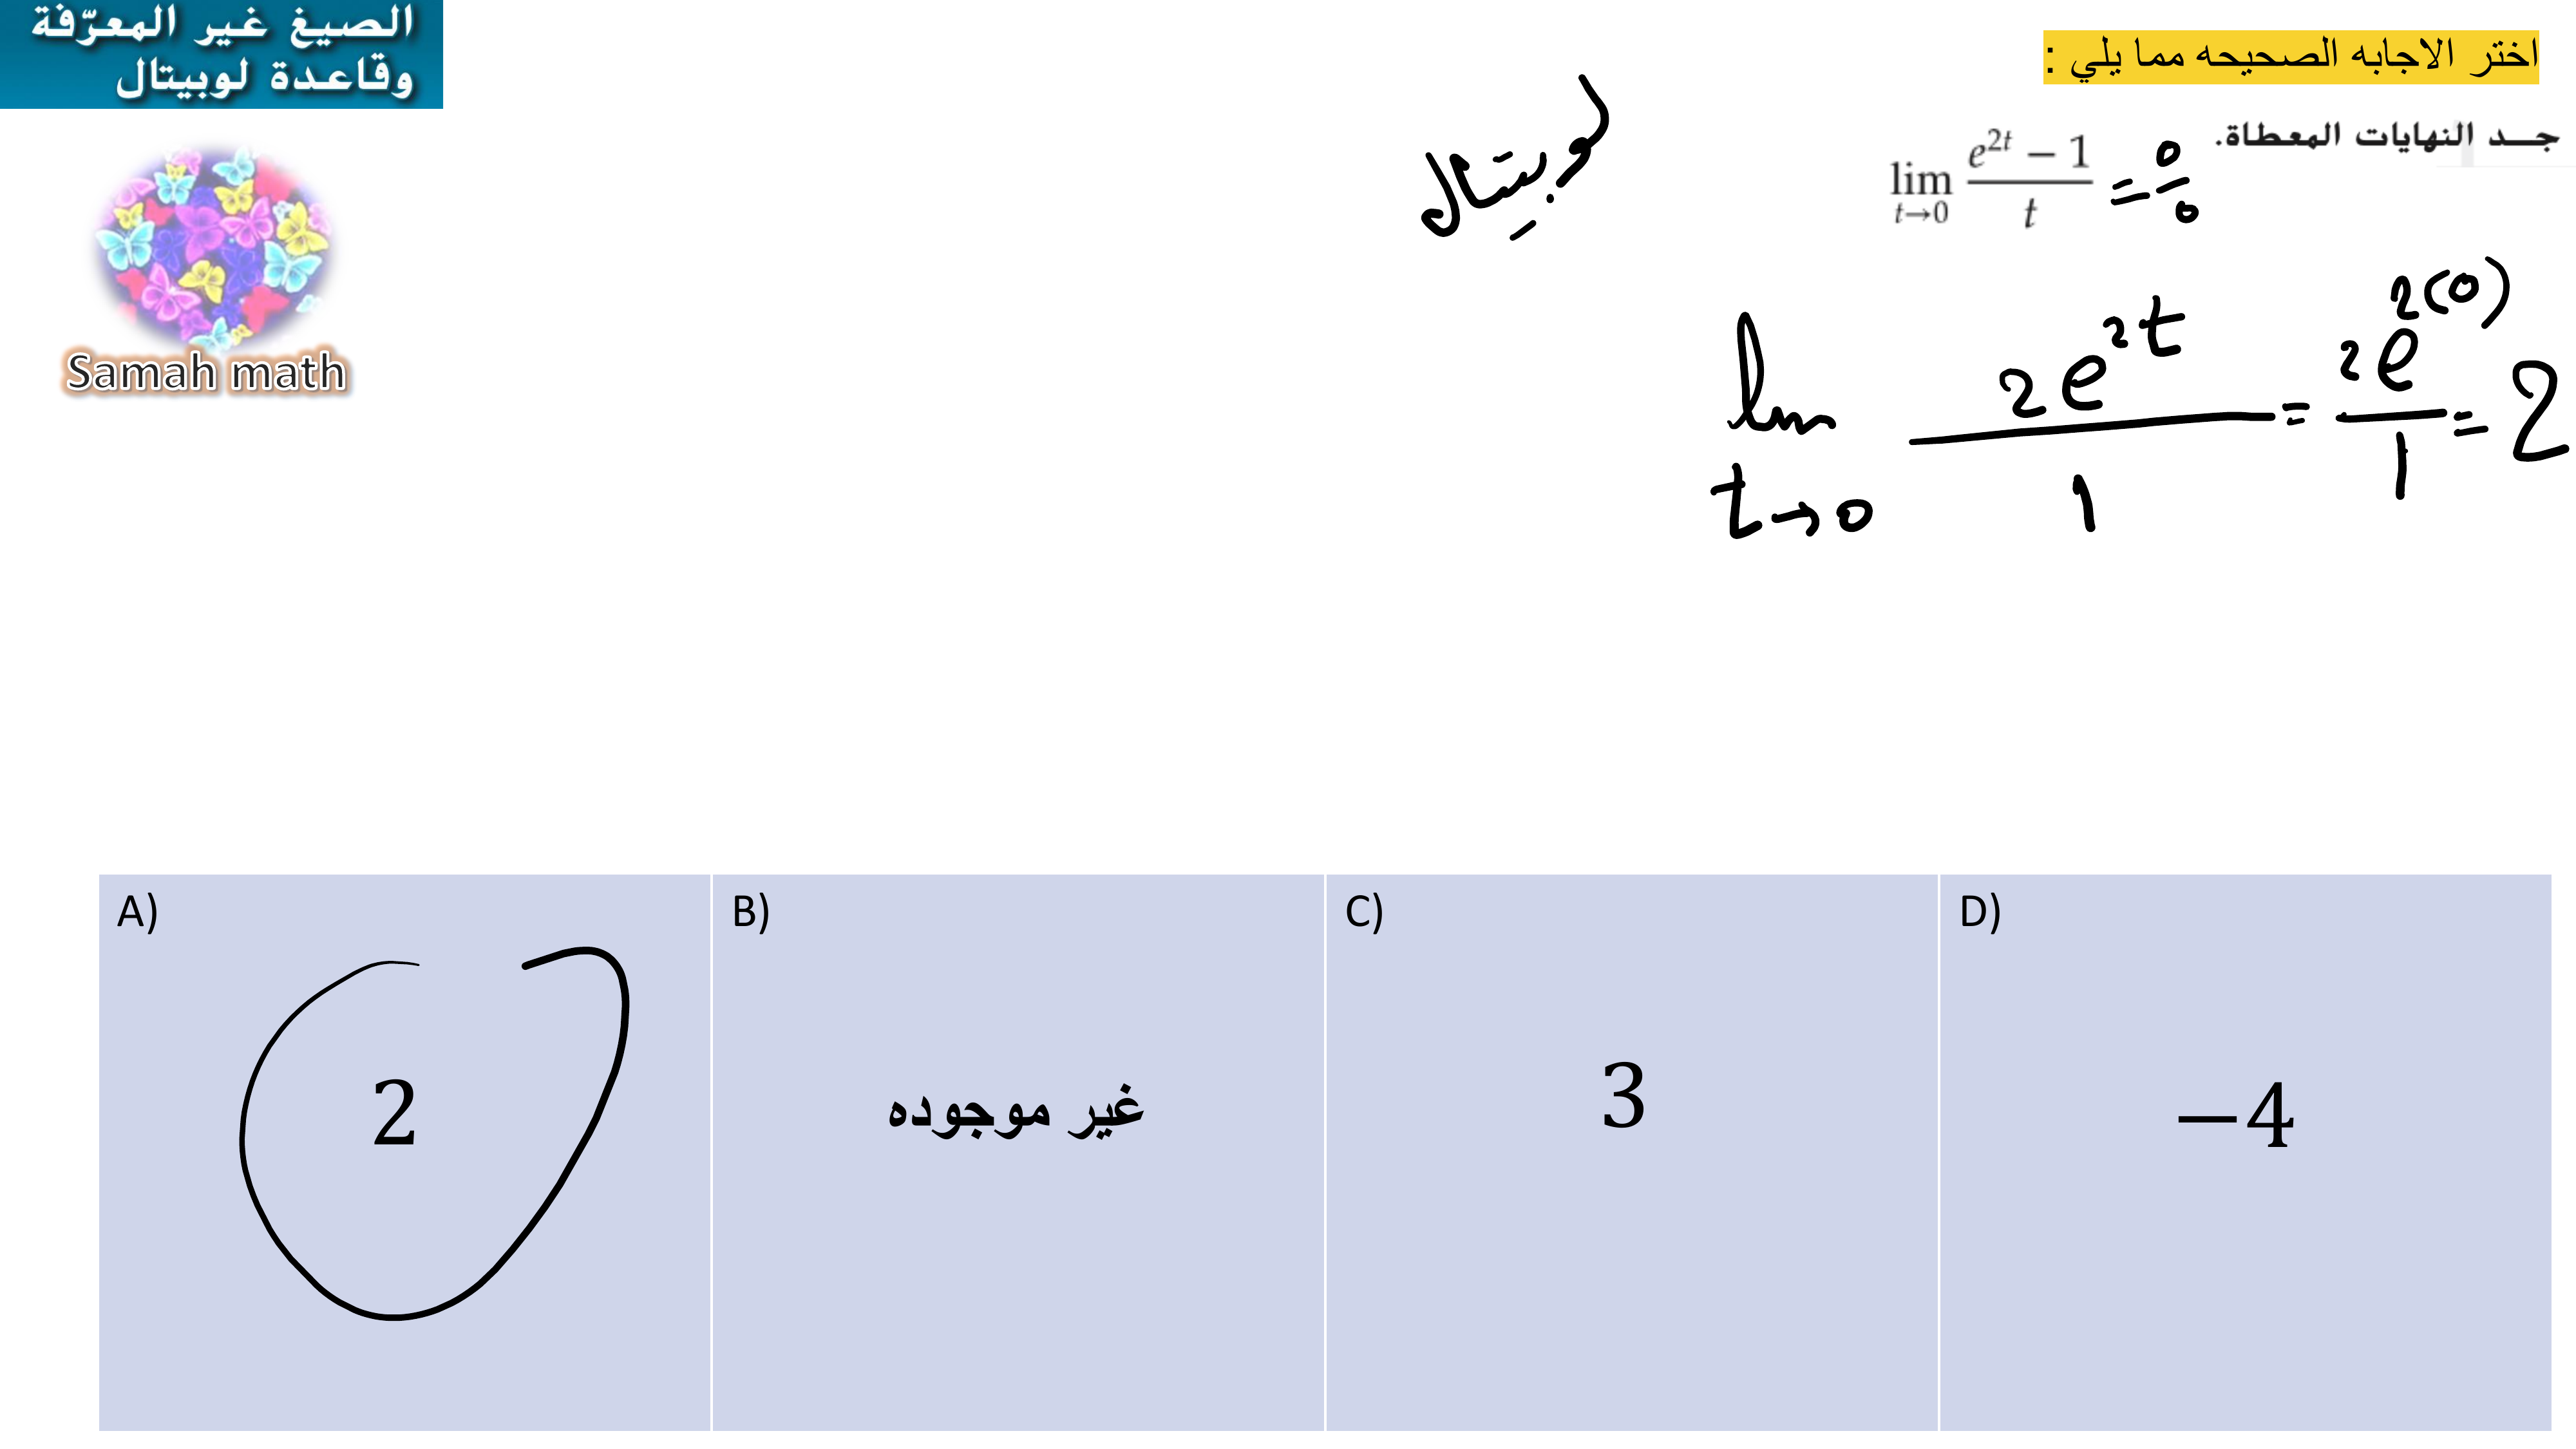 الصيغ غير المعرّفة
وقاعدة لوبيتال
Samah math
اختر الاجابه الصحيحه مما يلي :
جد النهايات المعطاة.
lim t→0 (e^{2t} − 1)/t = 0/0
لوبيتال
lim t→0 2e^{2t}/1 = 2e^{2(0)}/1 = 2
A)
2
B)
غير موجوده
C)
3
D)
−4